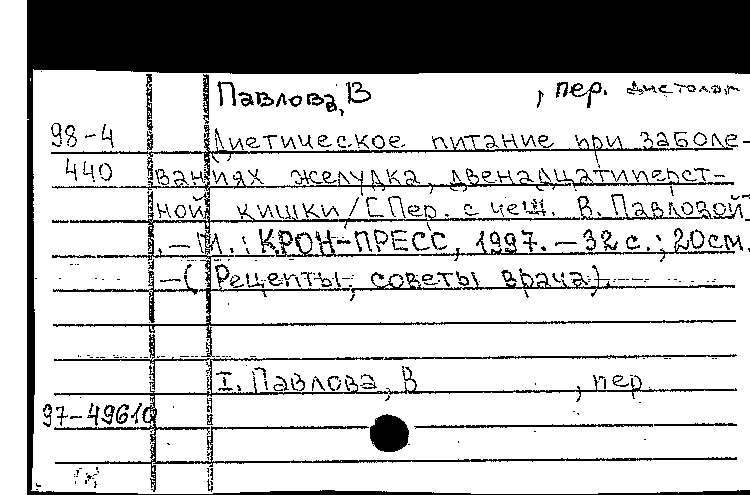 Павлова, В , пер. диетолог
98-4 Диетическое питание при заболе-
440 ваниях желудка, двенадцатиперст-
ной кишки / [Пер. с чеш. В. Павловой]
. – М. : КРОН-ПРЕСС, 1997. – 32 с. ; 20 см.
– ( Рецепты, советы врача ).
I. Павлова, В , пер.
97-49610